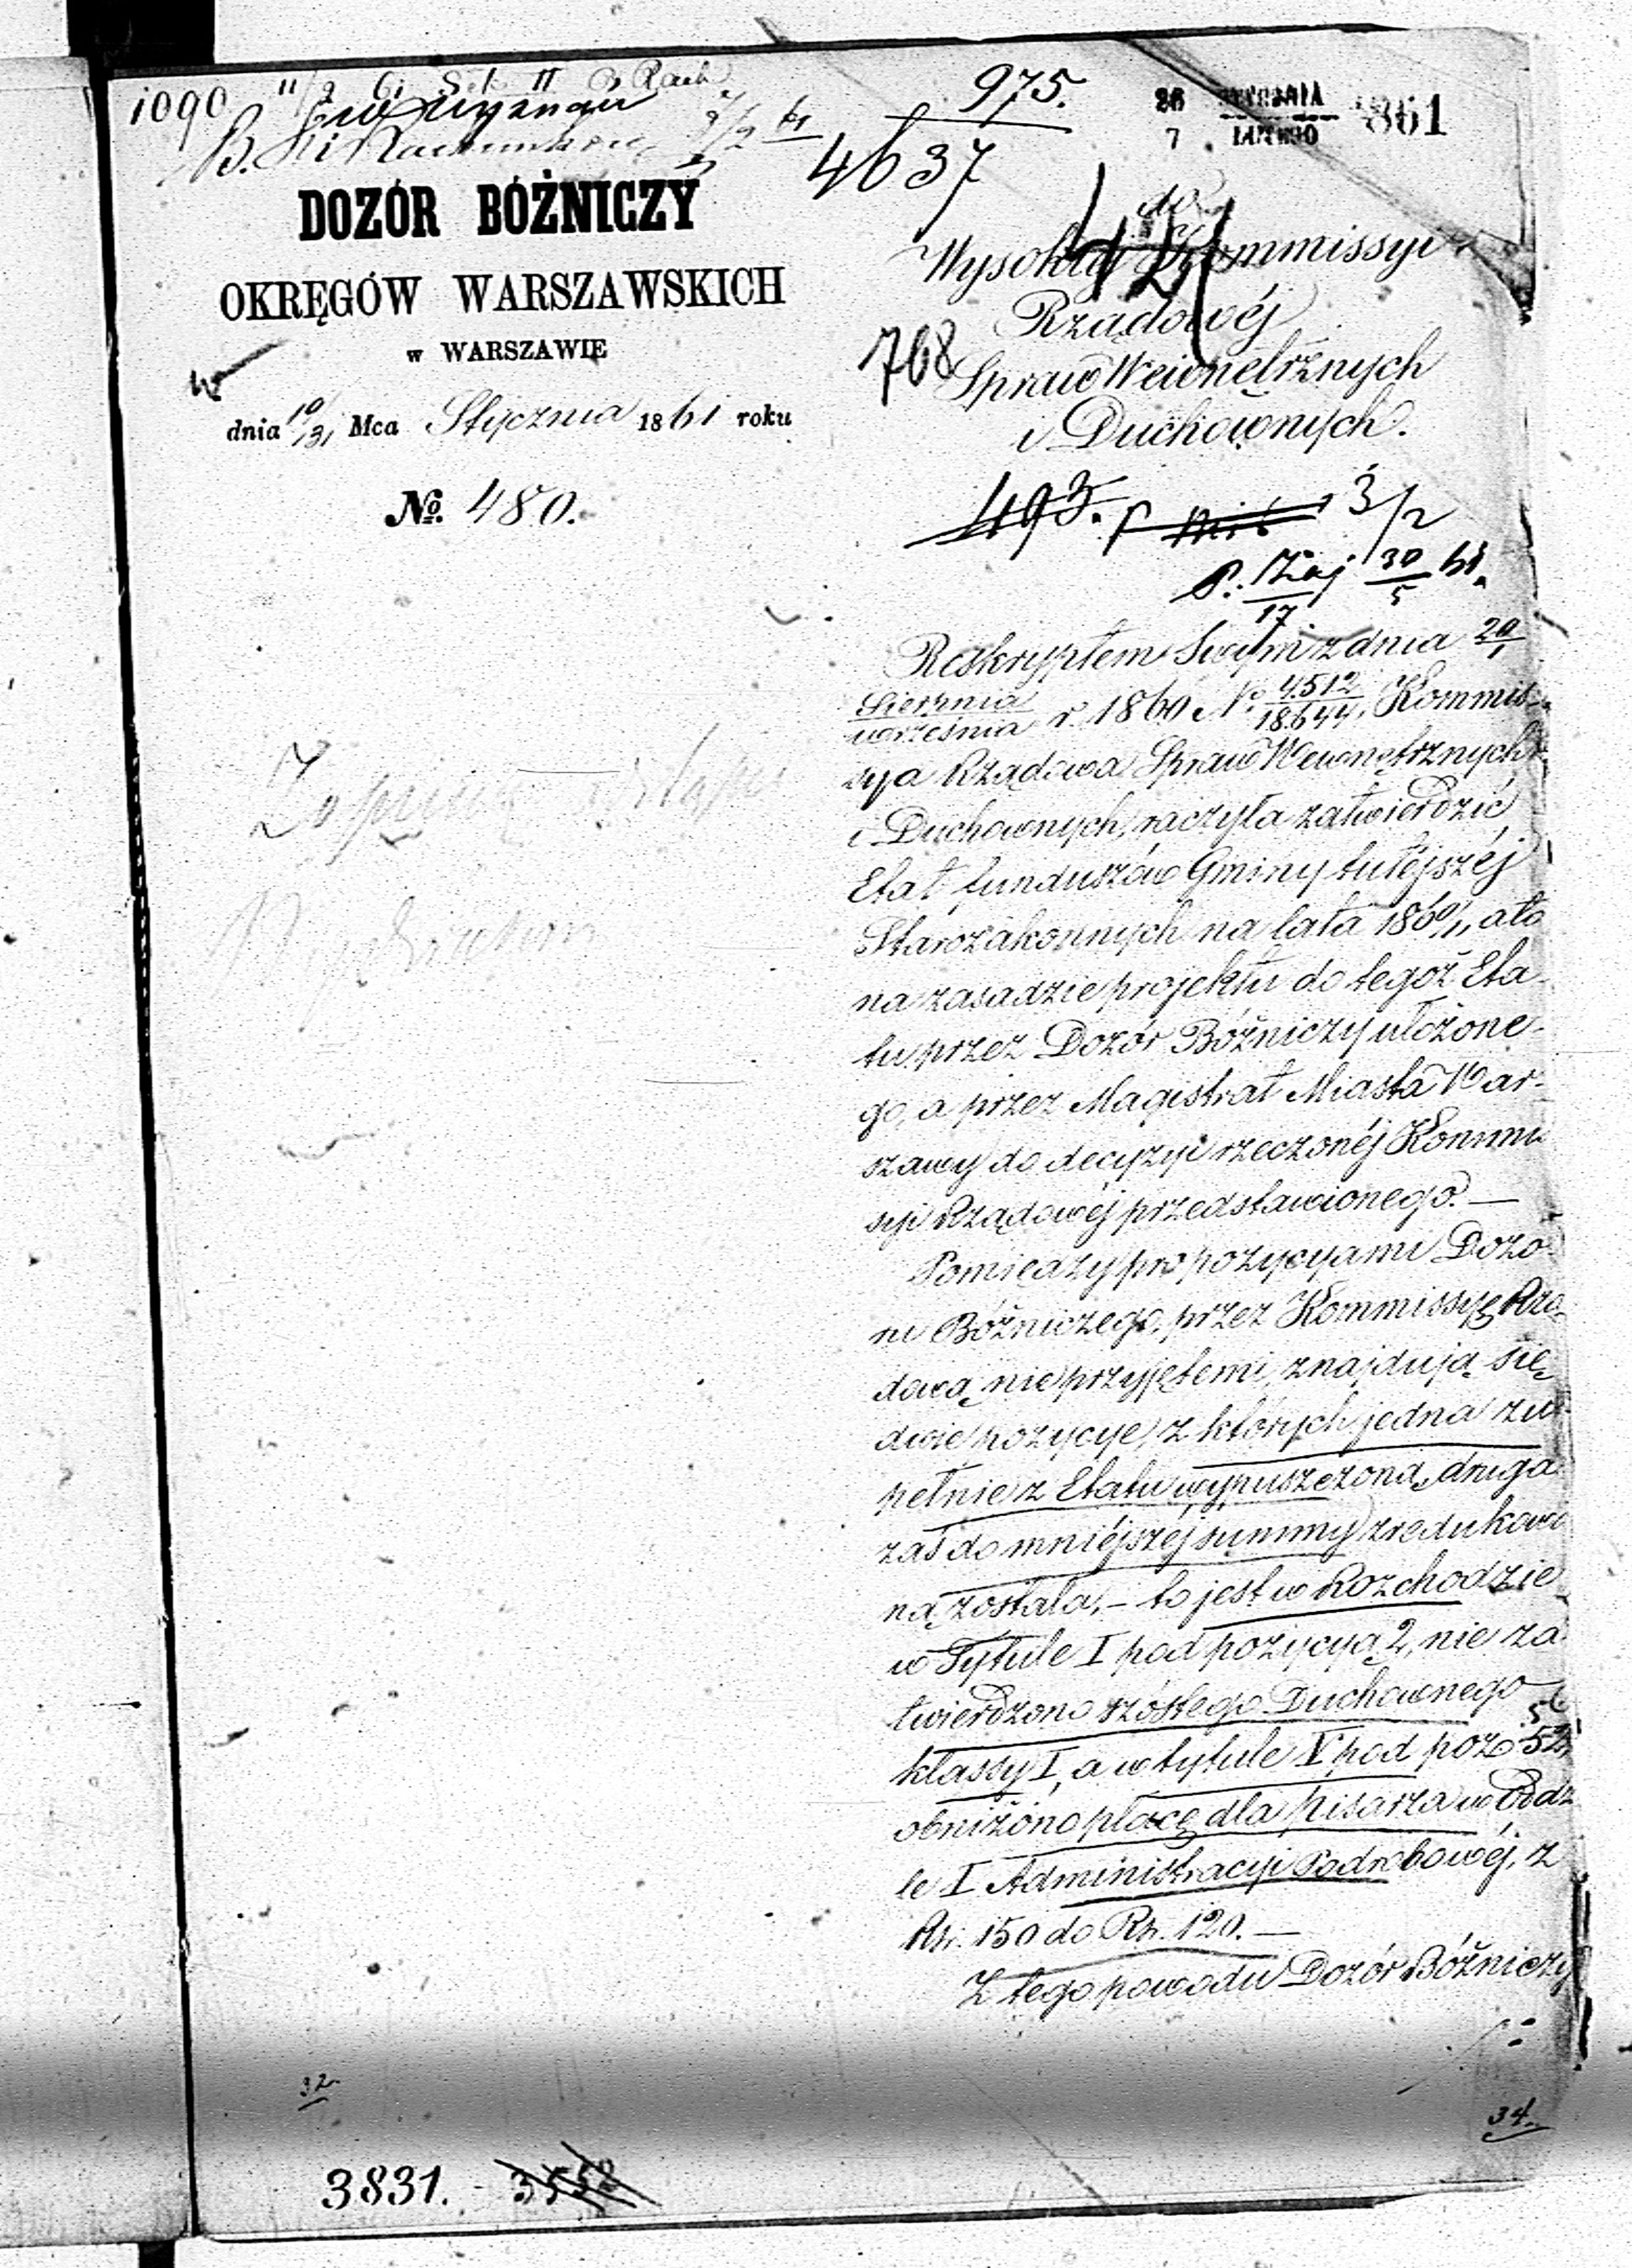 1090
975.
26 STYCZNIA
7 LUTEGO 1861
4637
DOZÓR BÓŻNICZY
OKRĘGÓW WARSZAWSKICH
w WARSZAWIE
dnia 19/31 Mca Stycznia 1861 roku
№ 480.
do
Wysokiej Kommissyi
Rządowéj
Spraw Wewnętrznych
i Duchownych.
421
768
493. 3/2
30/5 61.
17
Reskryptem Swym z dnia 20/1
Sierpnia/września r. 1860 No 4512/18644, Kommis-
sya Rządowa Spraw Wewnętrznych
i Duchownych, raczyła zatwierdzić
Etat funduszów Gminy tutéjszéj
Starozakonnych na lata 1860/1, a to
na zasadzie projektu do tegoż Eta-
tu przez Dozór Bóżniczy ułożone-
go, a przez Magistrat Miasta War-
szawy do decyzyi rzeczonéj Kommis
syi Rządowéj przedstawionego. —
Pomiędzy propozycyami Dozo-
ru Bóżniczego, przez Kommissyę Rzą-
dową nieprzyjętemi, znajdują się
dwie pozycye, z których jedna zu-
pełnie z Etatu wypuszczona, druga
zaś do mniéjszéj summy zredukowa
ną została, – to jest w Rozchodzie
w Tytule I pod pozycyą 2, nie za-
twierdzono szóstego Duchownego
klassy I, a w tytule V pod poz. 52,
obniżono płacę dla pisarza w Oddz
le I Administracyi Podrobowéj, z
Rs. 150 do Rs. 120. —
Z tego powodu Dozór Bóżniczy
32
34.
3831. - 3552